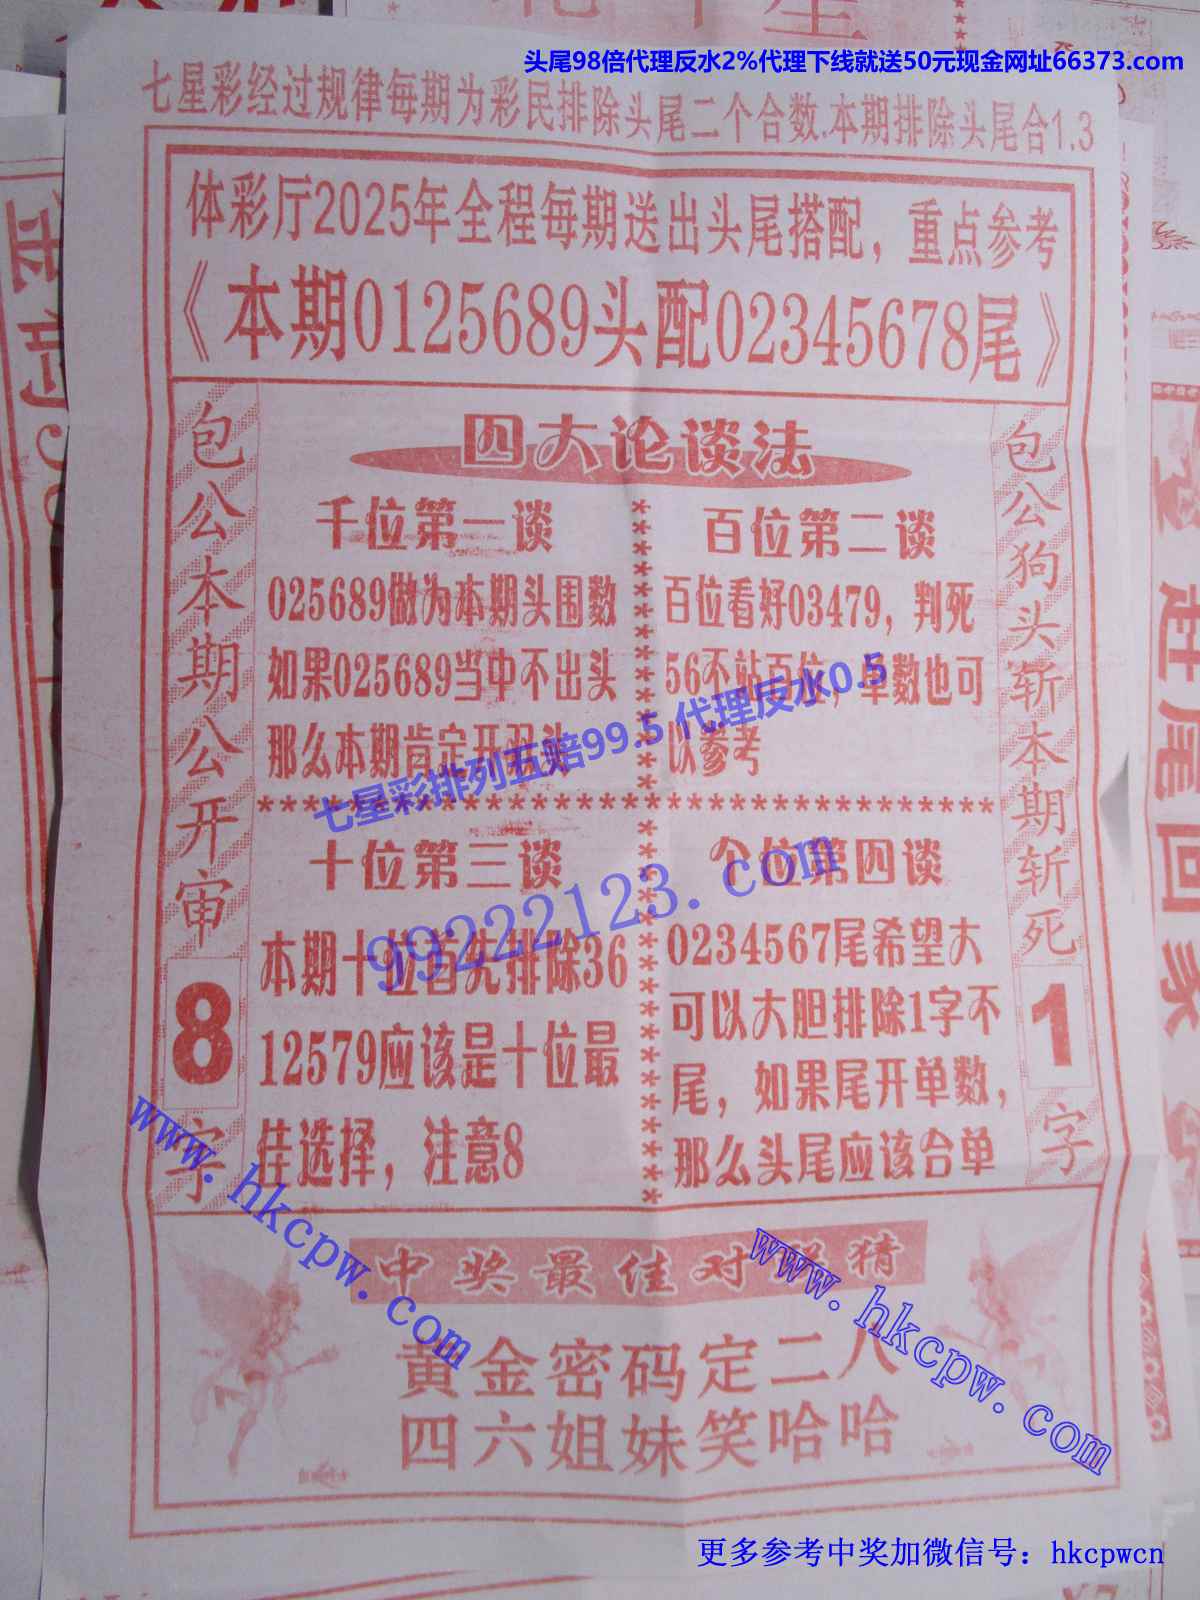 头尾98倍代理反水2%代理下线就送50元现金网址66373.com
七星彩经过规律每期为彩民排除头尾二个合数.本期排除头尾合1.3
体彩厅2025年全程每期送出头尾搭配，重点参考
《本期0125689头配02345678尾》
包公本期公开审
8
字
四大论谈法
千位第一谈
025689做为本期头围数
如果025689当中不出头
那么本期肯定开
百位第二谈
百位看好03479，判死
56不站百位，单数也可
以参考
十位第三谈
本期十位首先排除36
12579应该是十位最
佳选择，注意8
个位第四谈
0234567尾希望大
可以大胆排除1字不
尾，如果尾开单数，
那么头尾应该合单
包公狗头斩本期斩死
1
字
七星彩排列五赔99.5 代理反水0.5
99222123.com
中奖最佳对联猜
黄金密码定二八
四六姐妹笑哈哈
www.hkcpw.com
www.hkcpw.com
更多参考中奖加微信号：hkcpwcn
赶尾回家